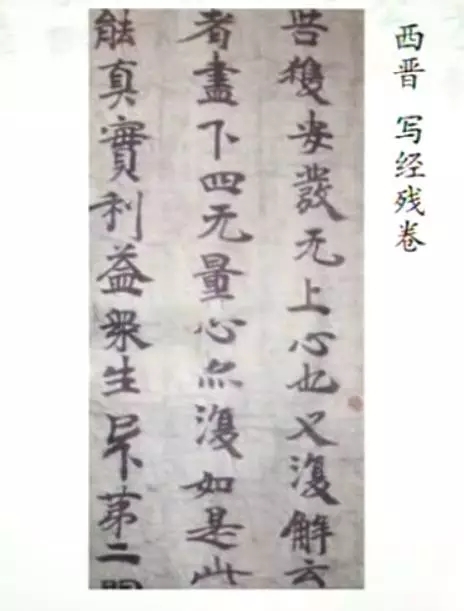 西晋 写经残卷
獲安發无上心也又復解云
者盡下四无量心亦復如是此
能真實利益衆生下苐二